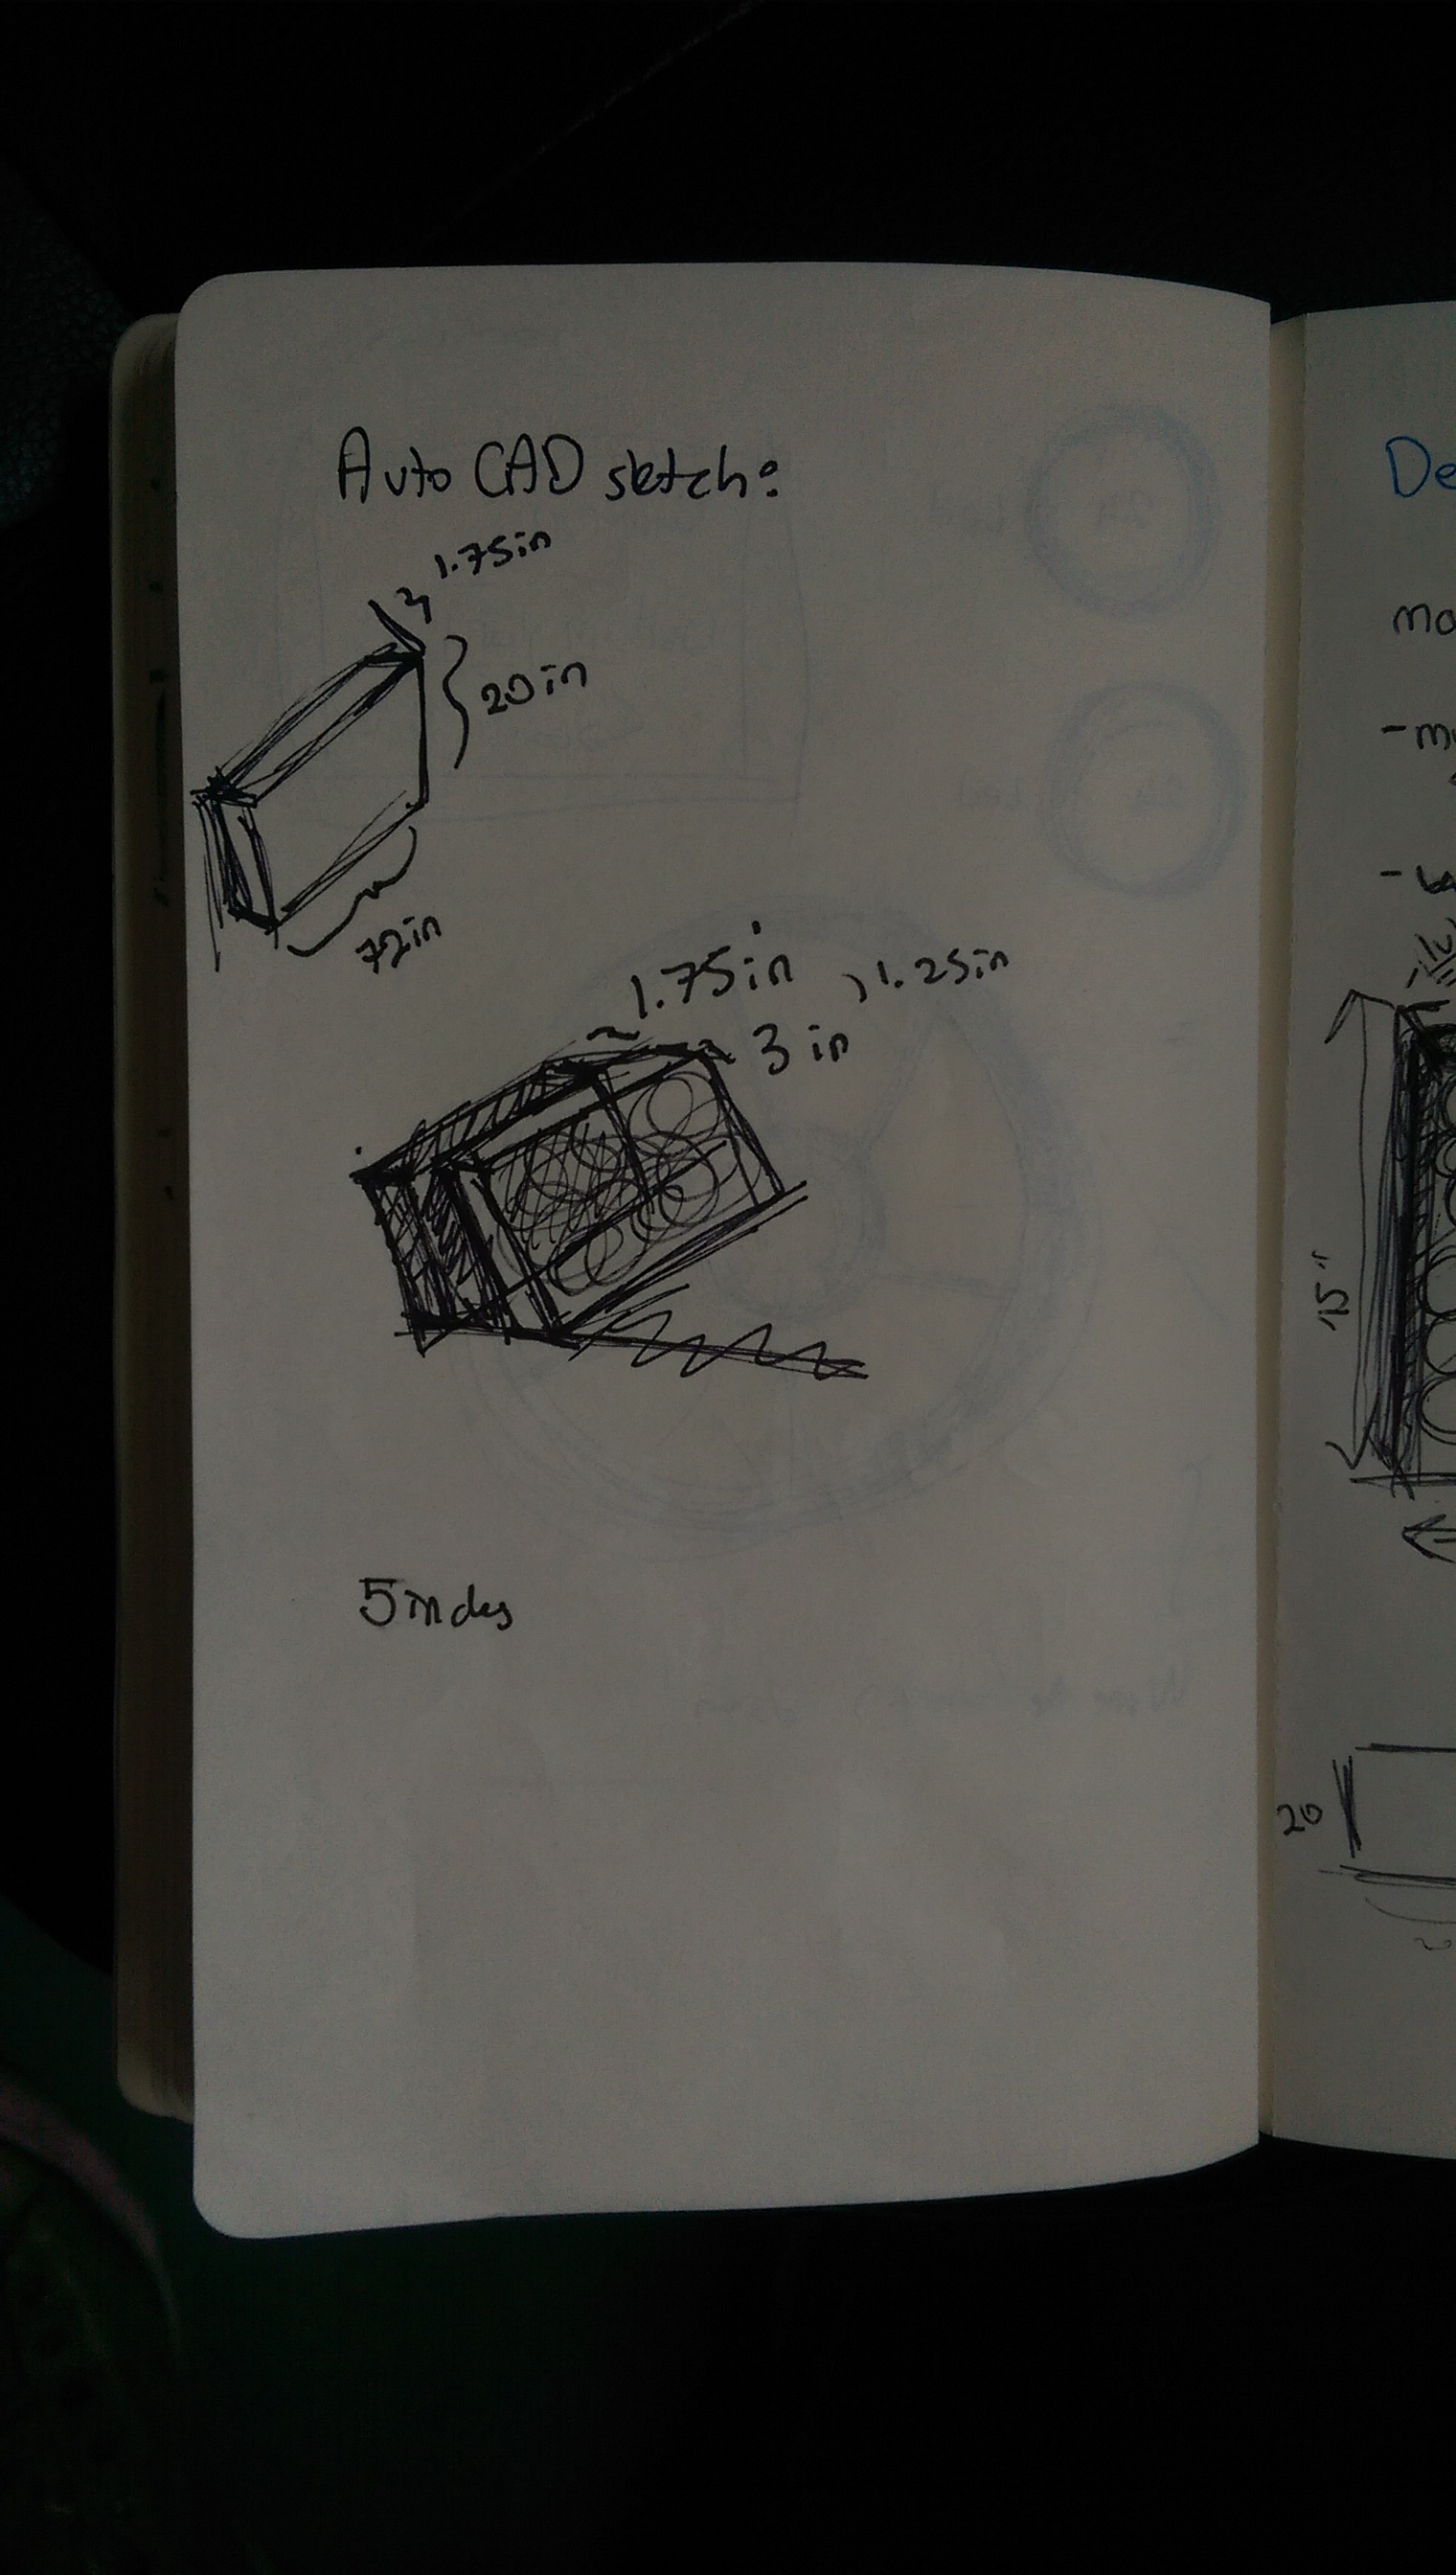 Auto CAD sketch:
1.75in
20in
72in
1.75in
1.25in
3 in
5 inches
De
mo
15"
20